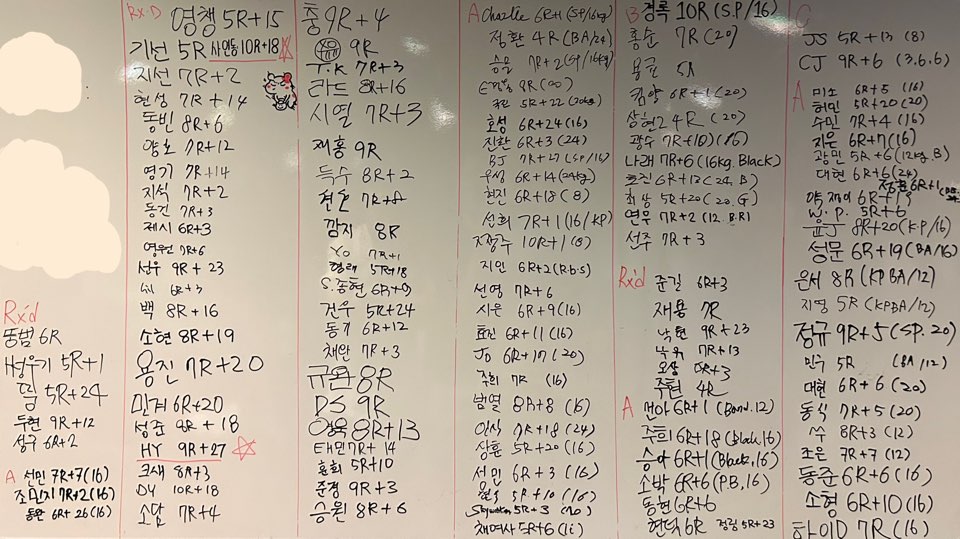 Rx'd
똥벌 6R
5R+1
5R+24
두현 9R+12
성구 6R+2
A 선민 7R+7(16)
조민지 7R+2(16)
동환 6R+26(16)
Rx'D
영챙 5R+15
기선 5R 사인동 10R+18
지선 7R+2
현성 7R+14
동빈 8R+6
양호 7R+12
영기 7R+14
지석 7R+2
동건 7R+3
제시 6R+3
영원 7R+6
성우 9R+23
6R+3
백 8R+16
소현 8R+19
용진 7R+20
민계 6R+20
성준 9R+18
HY 9R+27
크새 8R+3
DY 10R+18
소담 7R+4
충 9R+4
9R
T.K 7R+3
라드 8R+16
시열 7R+3
재홍 9R
득수 8R+2
7R+8
깜지 8R
YO 7R+1
5R+18
S.종현 6R+9
건우 5R+24
동기 6R+12
채안 7R+3
규완 8R
DS 9R
8R+13
태민 7R+14
5R+10
준경 9R+3
승원 8R+6
A Charlie 6R+1 (S.P/16kg)
정환 4R (BA/24)
승문 7R+2 (SP/16kg)
9R (00)
5R+22 (20kg)
효성 6R+24 (16)
지환 6R+3 (24)
BJ 7R+27 (SP/16)
우성 6R+14 (24kg)
현진 6R+18 (8)
성희 7R+1 (16/KP)
10R+1 (8)
지인 6R+2 (R.b.s)
선영 7R+6
시은 6R+9 (16)
효진 6R+11 (16)
Jo 6R+17 (20)
주희 7R (16)
범열 8R+8 (16)
인식 7R+18 (24)
상훈 5R+20 (16)
서민 6R+3 (16)
5R+10 (16)
Skywalker 5R+3 (20)
채여사 5R+6 (12)
B 경록 10R (S.P/16)
홍순 7R (20)
5R
킴양 6R+1 (20)
상현2 4R (20)
광수 7R+10 (16)
나래 7R+6 (16kg. Black)
효진 6R+12 (24. B)
희상 5R+20 (20. G)
연우 7R+2 (12. B.R)
선주 7R+3
Rx'd 준길 6R+3
재용 7R
낙현 9R+23
7R+13
6R+3
주현 4R
A 6R+1 (Band. 12)
주희 6R+18 (Black. 16)
승아 6R+1 (Black. 16)
소박 6R+6 (PB, 16)
동현 6R+6
현덕 6R 정림 5R+23
C
JS 5R+13 (8)
CJ 9R+6 (3.6.6)
A 미소 6R+5 (16)
허민 5R+20 (20)
수민 7R+4 (16)
지은 6R+7 (16)
광민 5R+6 (12kg.B)
대현 6R+6 (24)
6R+1
6R+19
W.P. 5R+6
윤J 8R+20 (KP/16)
성문 6R+19 (BA/16)
은서 8R (KPBA/12)
지영 5R (KPBA/12)
정규 9R+5 (SP. 20)
민수 5R (BA/12)
대현 6R+6 (20)
동식 7R+5 (20)
쑤 8R+3 (12)
조은 7R+7 (12)
동준 6R+6 (16)
소형 6R+10 (16)
하이D 7R (16)